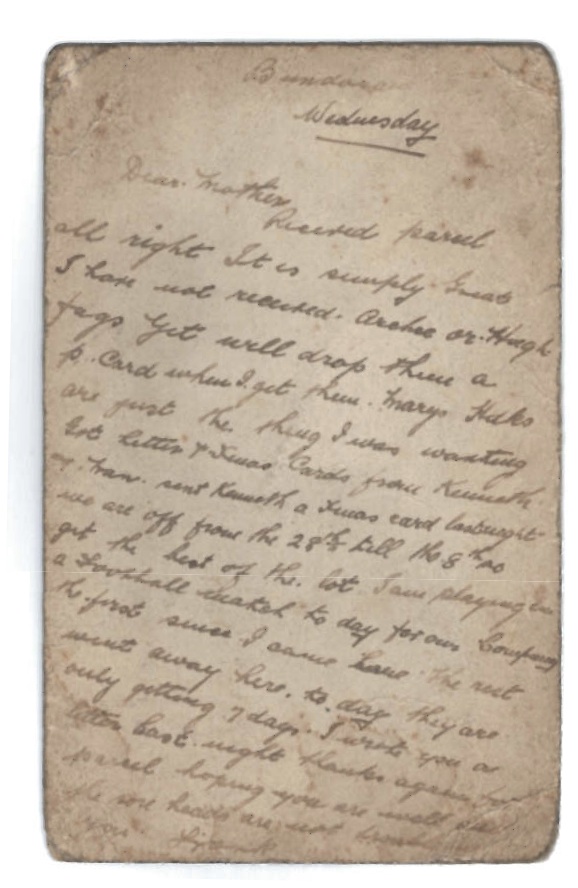 Bundoran
Wednesday
Dear Mother
Received parcel
all right It is simply Great
I have not received. Archie or. Hugh
fags yet will drop them a
p. Card when I get them. Marys
are just the thing I was wanting
Got letter & Xmas Cards from Kenneth.
sent Kenneth a Xmas card last night
we are off from the 28th till the 8th so
get the best of the. lot. I am playing in
a Football match to day for our Company
the first since I came here The rest
went away here. to. day they are
only getting 7 days. I wrote you a
letter last. night thanks again for
parcel hoping you are well
the sore heads are not
you